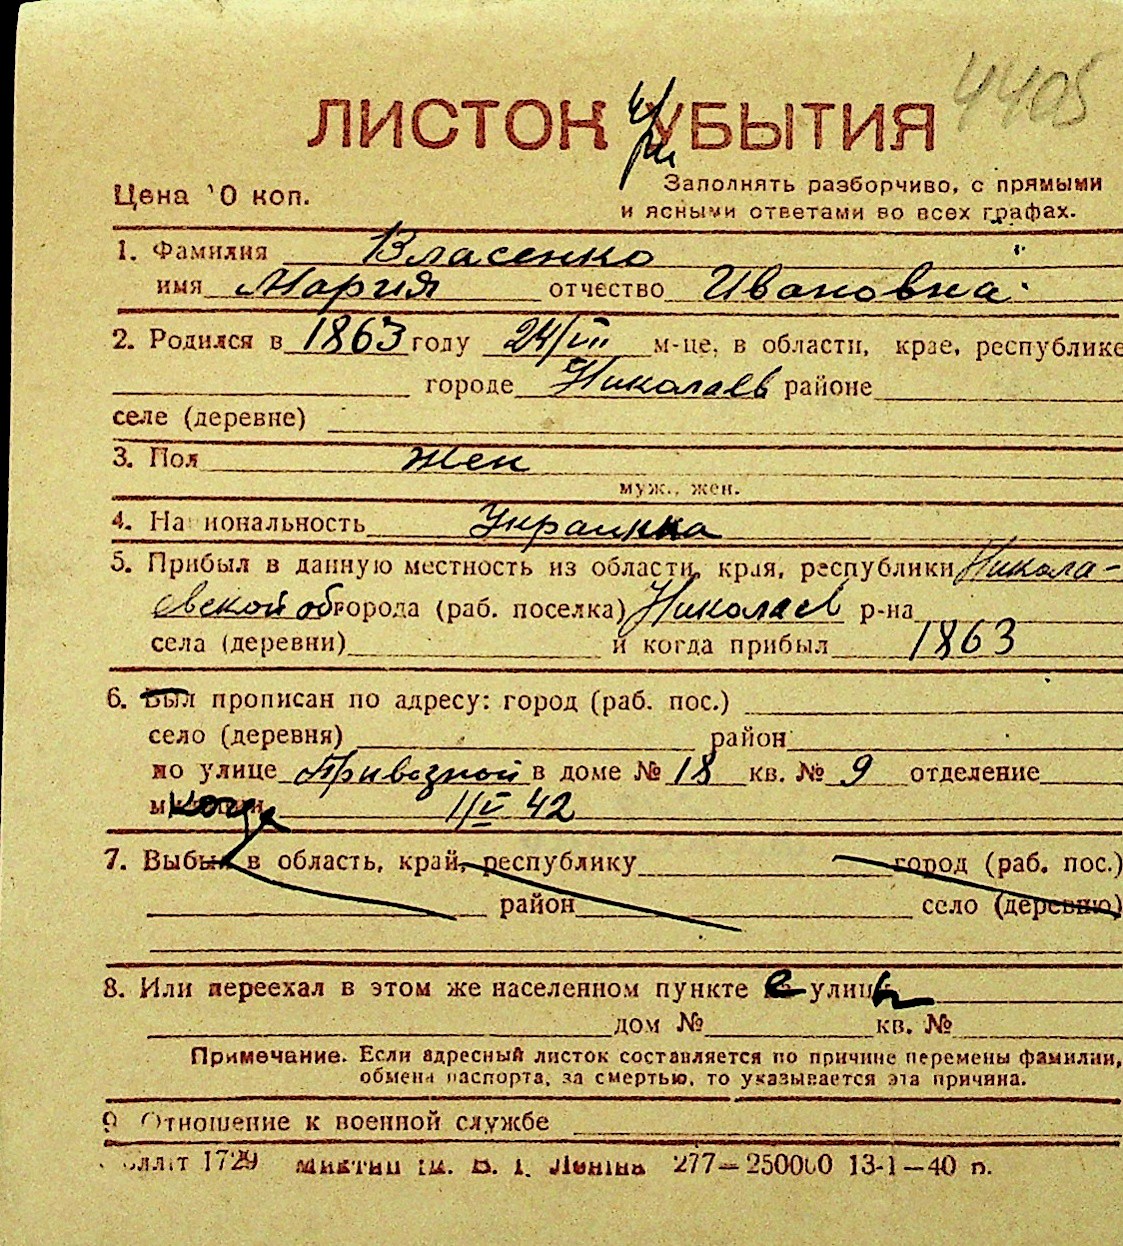 4405
ЛИСТОК при УБЫТИЯ
Цена 10 коп.
Заполнять разборчиво, с прямыми
и ясными ответами во всех графах.
1. Фамилия Власенко
имя Мария отчество Ивановна
2. Родился в 1863 году 24/VII м-це, в области, крае, республике
городе Николаев районе
селе (деревне)
3. Пол жен
муж., жен.
4. Национальность Украинка
5. Прибыл в данную местность из области, края, республики Никола-
евской об города (раб. поселка) Николаев р-на
села (деревни) и когда прибыл 1863
6. Был прописан по адресу: город (раб. пос.)
село (деревня) район
по улице Привозной в доме № 18 кв. № 9 отделение
милиции когда 1/V 42
7. Выбыл в область, край, республику город (раб. пос.)
район село (деревню)
8. Или переехал в этом же населенном пункте с улицы
дом № кв. №
Примечание. Если адресный листок составляется по причине перемены фамилии,
обмена паспорта, за смертью, то указывается эта причина.
9 Отношение к военной службе
1729 им. В. І. Леніна 277—250000 13-1—40 п.